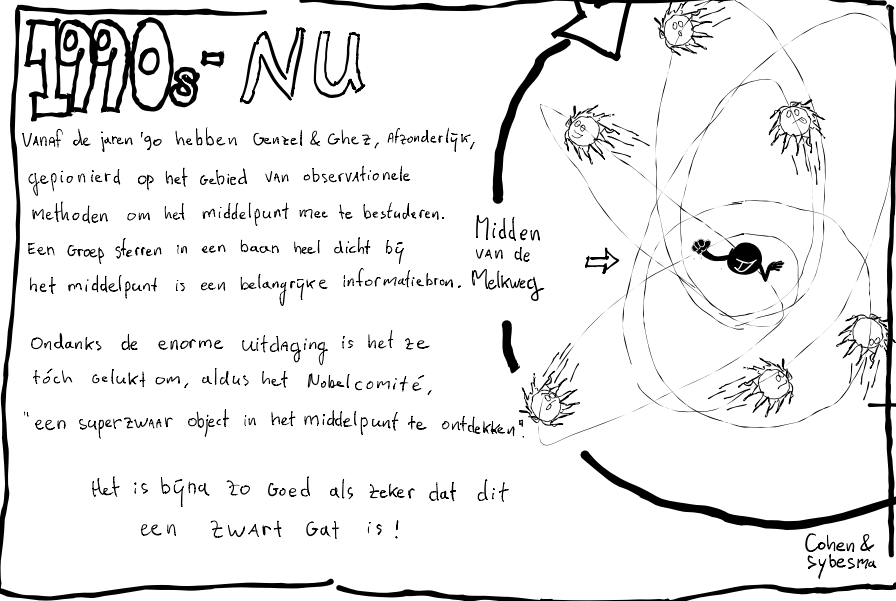 1990s- NU
Vanaf de jaren '90 hebben Genzel & Ghez, Afzonderlijk,
gepionierd op het gebied van observationele
methoden om het middelpunt mee te bestuderen.
Een Groep sterren in een baan heel dicht bij
het middelpunt is een belangrijke informatiebron.
Midden
van de
Melkweg
Ondanks de enorme uitdaging is het ze
tóch gelukt om, aldus het Nobelcomité,
"een superzwaar object in het middelpunt te ontdekken".
Het is bijna zo goed als zeker dat dit
een zwart gat is!
Cohen &
Sybesma